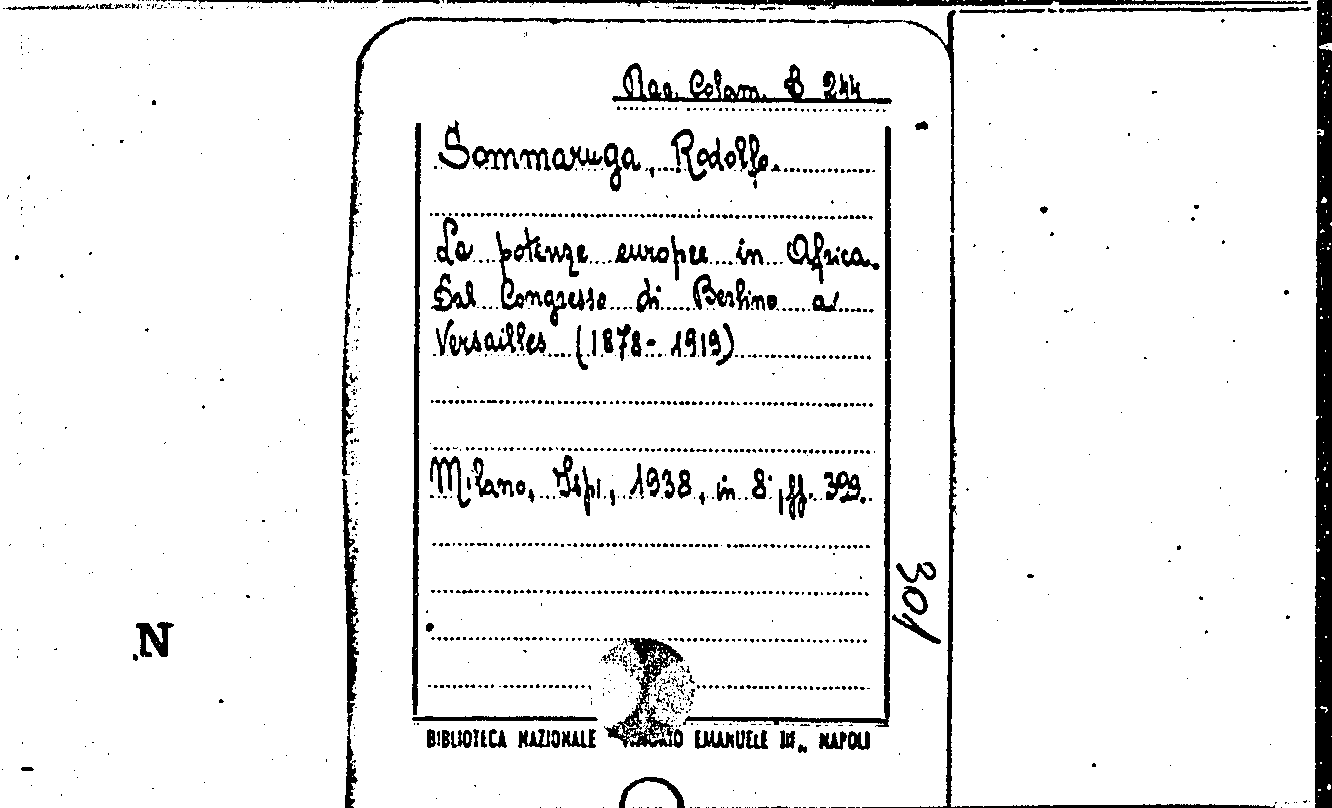 Rac. Colom. B 244
Sommaruga, Rodolfo.
Le potenze europee in Africa.
Dal Congresso di Berlino a
Versailles (1878-1919)
Milano, Ispi, 1938, in 8°, ff. 399.
301
N
BIBLIOTECA NAZIONALE EMANUELE III„ NAPOLI